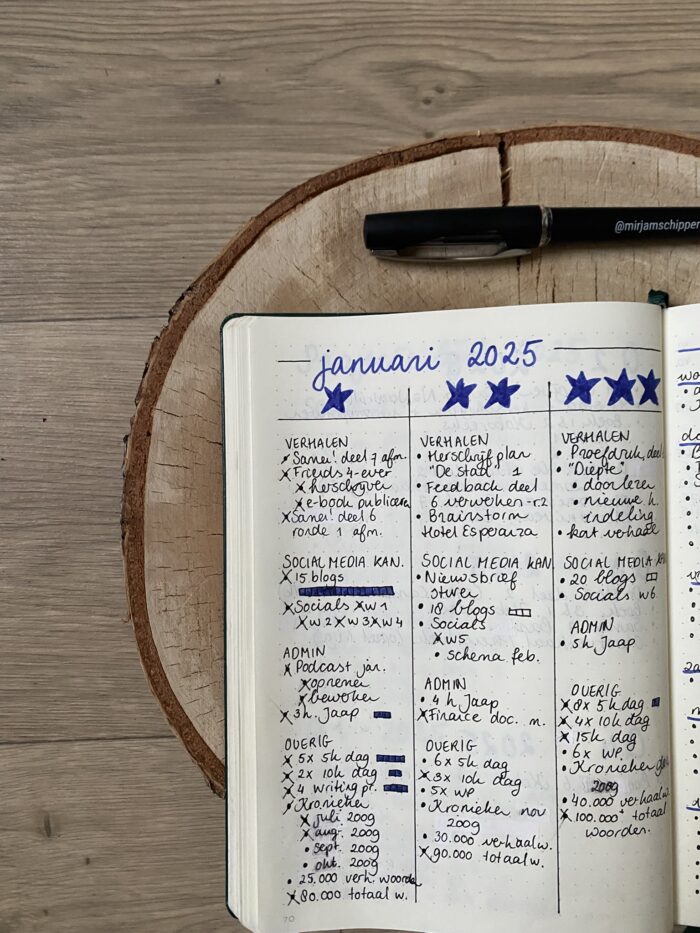 @mirjamschipper
januari 2025
VERHALEN
Sanei! deel 7 afm.
Friends 4-ever
herschrijven
e-book publiceren
Sanei! deel 6
ronde 1 afm.
SOCIAL MEDIA KAN.
15 blogs
Socials w1
w2 w3 w4
ADMIN
Podcast jan.
opnemen
bewerken
3h. Jaap
OVERIG
5x 5k dag
2x 10k dag
4 writing pr.
Kronieken
juli 2009
aug. 2009
sept. 2009
okt. 2009
25.000 verh. woorden
80.000 totaal w.
70
VERHALEN
Herschrijfplan
"De stad" 1
Feedback deel
6 verwerken - r.2
Brainstorm
Hotel Esperanza
SOCIAL MEDIA KAN
Nieuwsbrief
sturen
18 blogs
Socials
w5
schema feb.
ADMIN
4 h Jaap
Finance doc. m.
OVERIG
6x 5k dag
3x 10k dag
5x WP
Kronieken nov
2009
30.000 verhaalw.
90.000 totaal w.
VERHALEN
Proefdruk deel
"Diepte"
doorlezen
nieuwe h.
indeling
kort verhaal
SOCIAL MEDIA KAN
20 blogs
Socials w6
ADMIN
5h Jaap
OVERIG
8x 5k dag
4x 10k dag
15k dag
6x WP
Kronieken
2009
40.000 verhaalw.
100.000 totaal
woorden.